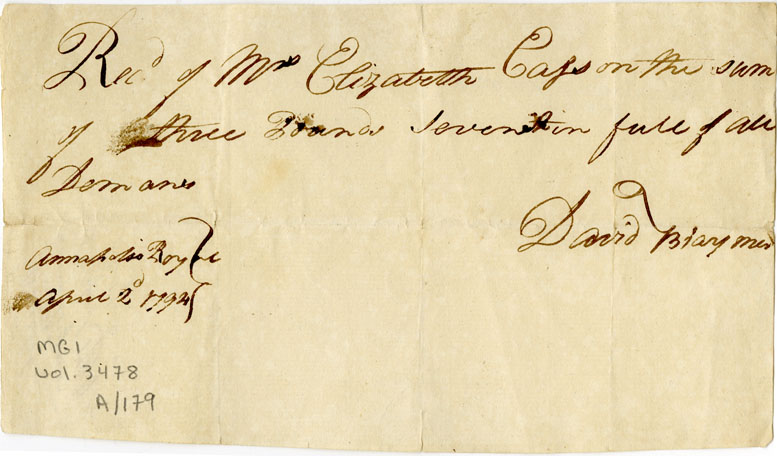 Rec'd of Mrs Elizabeth Casson the sum
of three Pounds Seven in full of all
Demans
David
Annapolis Royal
April 2d
MG1
Vol. 3478
A/179